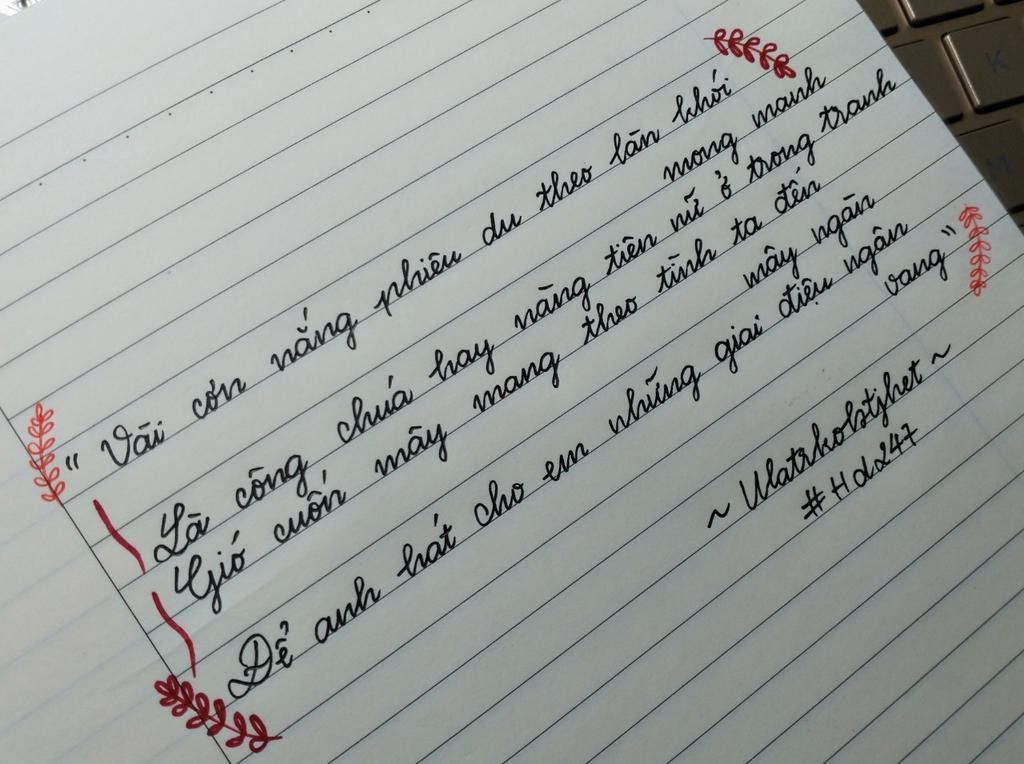 " Vài cơn nắng phiêu du theo làn khói
mong manh
Là công chúa hay nàng tiên nữ ở trong tranh
Gió cuốn mây mang theo tình ta đến
mây ngàn
Để anh hát cho em những giai điệu ngân
vang "
#Hd247
K
M